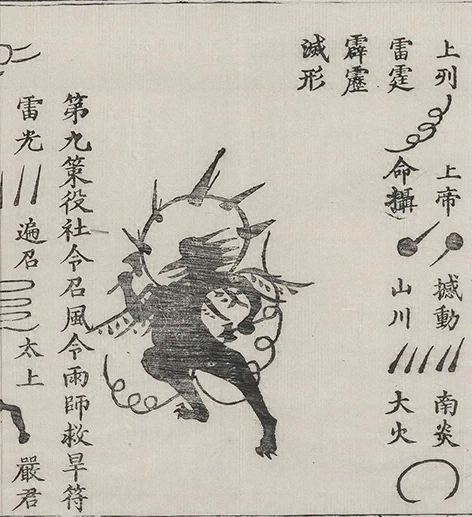 上列 上帝 撼動 南炎
雷霆 命攝 山川 大火
霹靂
滅形
第九策役社令召風令雨師救旱符
雷光 遍召 太上 嚴君